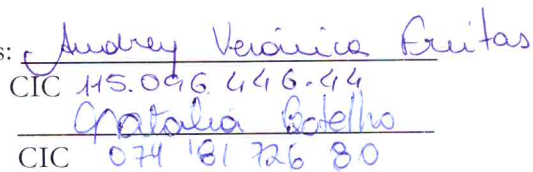 s: Audrey Verônica Freitas
CIC 115.096 446-44
Natalia Botelho
CIC 074 181 726 80